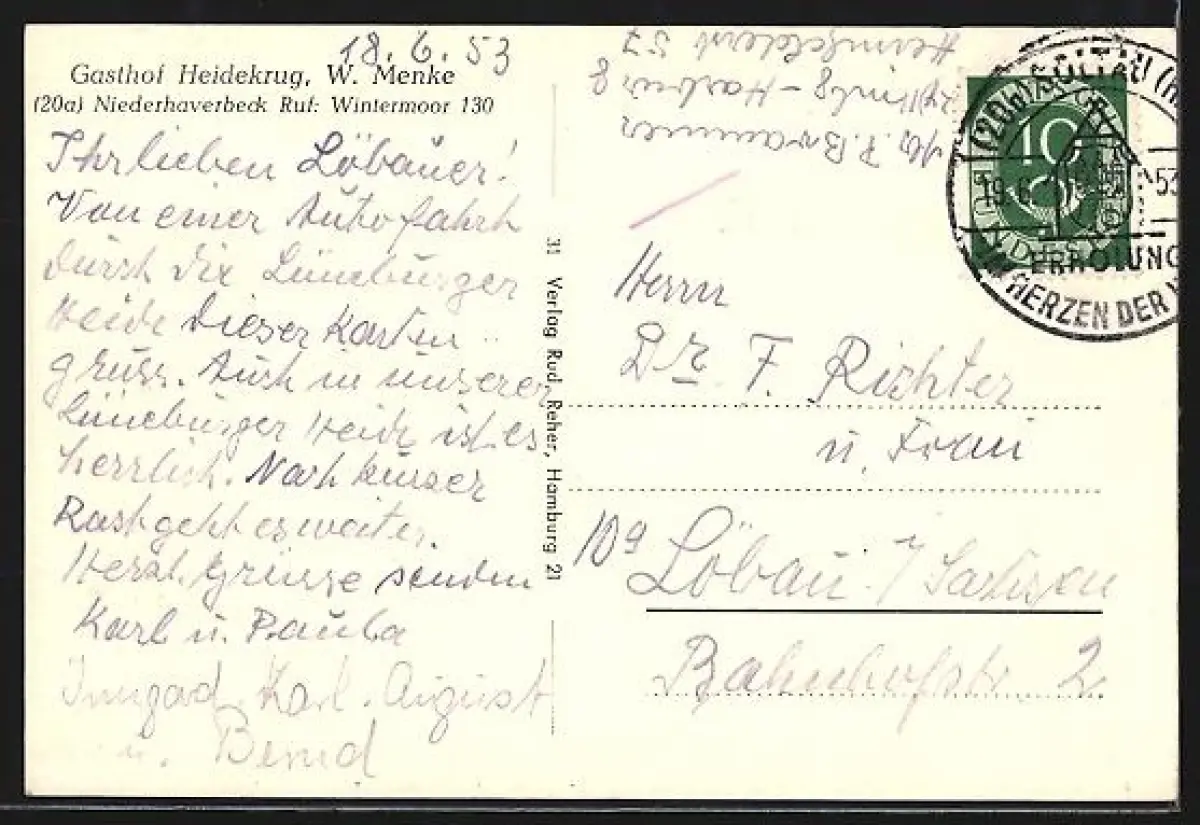 18.6.53
Gasthof Heidekrug, W. Menke
(20a) Niederhaverbeck Ruf: Wintermoor 130
Ihr lieben Löbauer!
Von einer Autofahrt
durch die Lüneburger
Heide diesen Karten-
gruss. Auch in unserer
Lüneburger Heide ist es
herrlich. Nach kurzer
Rast geht es weiter.
Herzl. Grüsse senden
Karl u. Paula
Irmgad. Karl. August
u. Bernd
31 Verlag Rud. Reher, Hamburg 21
P. Brammer
Hamburg-Harburg
57
Herrn
Dr. F. Richter
u. Frau
10a Löbau i/ Sachsen
Bahnhofstr 2
10
(20a) SOLTAU
19.6. 53
ERHOLUNG
HERZEN DER